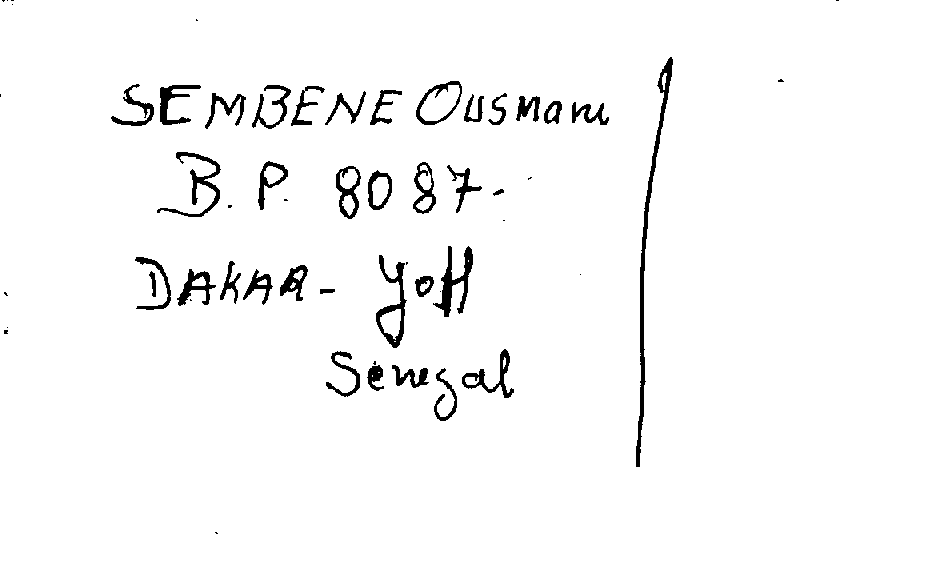 SEMBENE Ousmane
B.P. 8087-
DAKAR - Yoff
Senegal